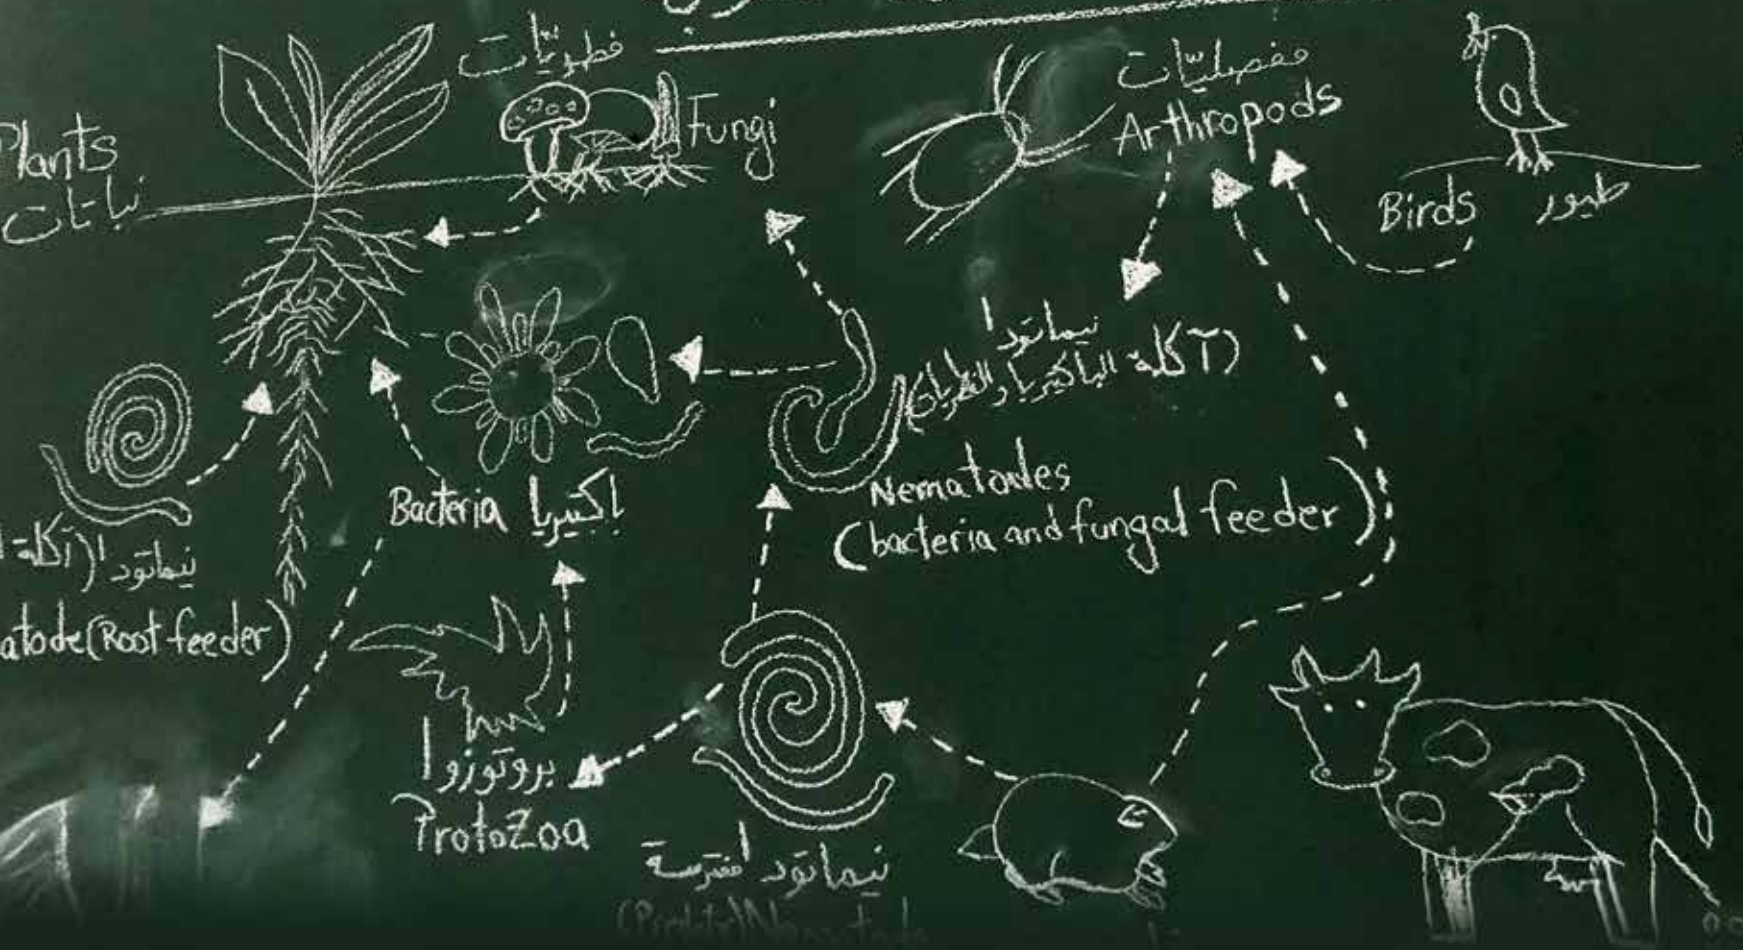 فطريّات
Fungi
مفصليّات
Arthropods
Plants
نباتات
Birds طيور
نيماتودا
(آكلة الباكتيريا والفطريات)
Nematodes
(bacteria and fungal feeder)
Bacteria باكتيريا
نيماتودا (آكلة
atode (Root feeder)
بروتوزوا
Protozoa
نيماتودا مفترسة